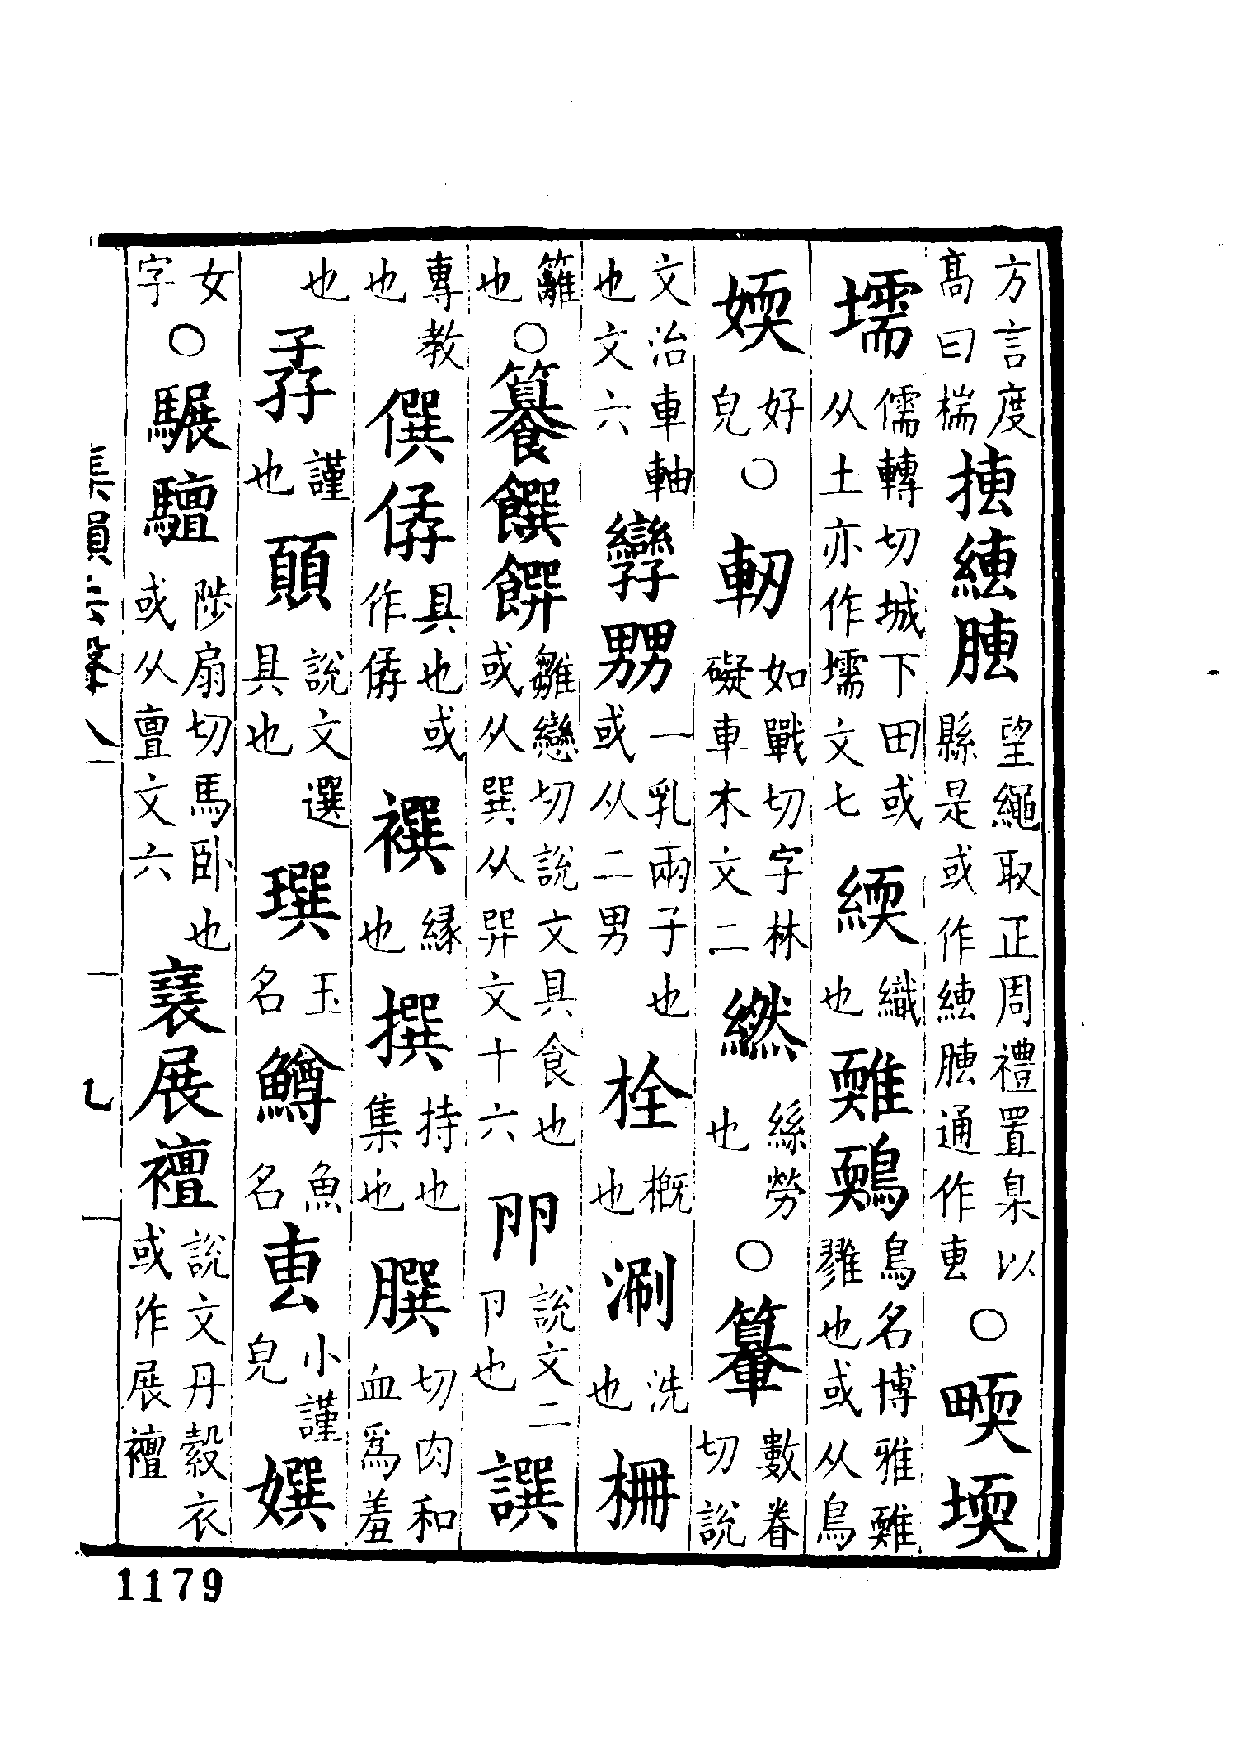 方言度高曰椯望繩取正周禮置臬以縣是或作通作叀○㽭堧
壖儒轉切城下田或从土亦作壖文七緛織也鳥名博雅也或从鳥
媆好皃○軔如戰切字林礙車木文二繎絲勞也○數眷切說
文治車軸也文六孿一乳兩子也或从二男栓槪也涮洗也栅
籬也○籑饌雛戀切說文具食也或从巽从文十六說文二卪也譔
專教也僎具也或作襈緣也撰持也集也切肉和血爲羞
也孨謹也說文選具也玉名鱒魚名叀小謹皃
女字○驙陟扇切馬臥也或从亶文六展襢說文丹縠衣或作展襢
集韻去聲八 九
1179